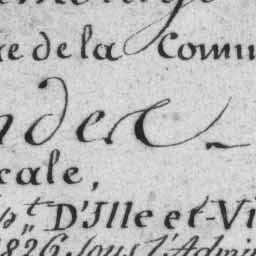 re de la Comm
ndex
cale,
pt D'Ille et-Vi
1826 sous l'Admin